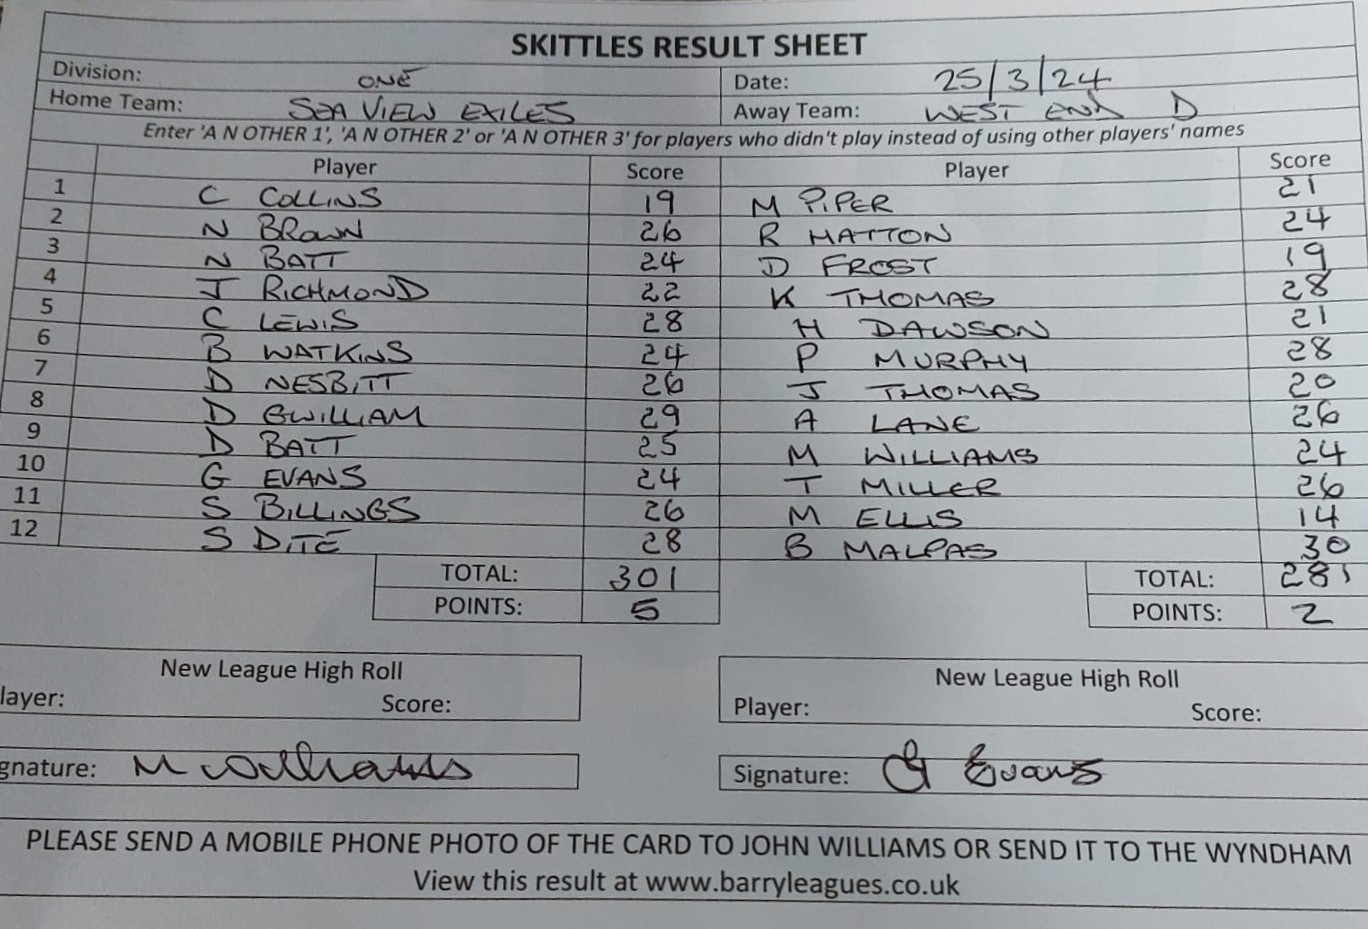 SKITTLES RESULT SHEET
Division: ONE Date: 25/3/24
Home Team: SEA VIEW EXILES Away Team: WEST END D
Enter 'A N OTHER 1', 'A N OTHER 2' or 'A N OTHER 3' for players who didn't play instead of using other players' names
Player Score Player Score
1 C COLLINS 19 M PIPER 21
2 N BROWN 26 R HATTON 24
3 N BATT 24 D FROST 19
4 J RICHMOND 22 K THOMAS 28
5 C LEWIS 28 H DAWSON 21
6 B WATKINS 24 P MURPHY 28
7 D NESBITT 26 J THOMAS 20
8 D GWILLIAM 29 A LANE 26
9 D BATT 25 M WILLIAMS 24
10 G EVANS 24 T MILLER 26
11 S BILLINGS 26 M ELLIS 14
12 S DITE 28 B MALPAS 30
TOTAL: 301 TOTAL: 281
POINTS: 5 POINTS: 2
New League High Roll New League High Roll
layer: Score: Player: Score:
gnature: M Williams Signature: G Evans
PLEASE SEND A MOBILE PHONE PHOTO OF THE CARD TO JOHN WILLIAMS OR SEND IT TO THE WYNDHAM
View this result at www.barryleagues.co.uk